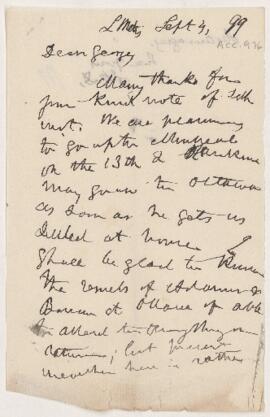 L Metis, Sept 4, 99
ACC.976
Dear George
Many thanks for
your kind note of
inst. We are planning
to go up to Montreal
on the 13th &
may go on to Ottawa
as soon as he gets us
settled at home I
shall be glad to know
the results of
Bureau at Ottawa if able
to attend to anything on
return; but
here is rather